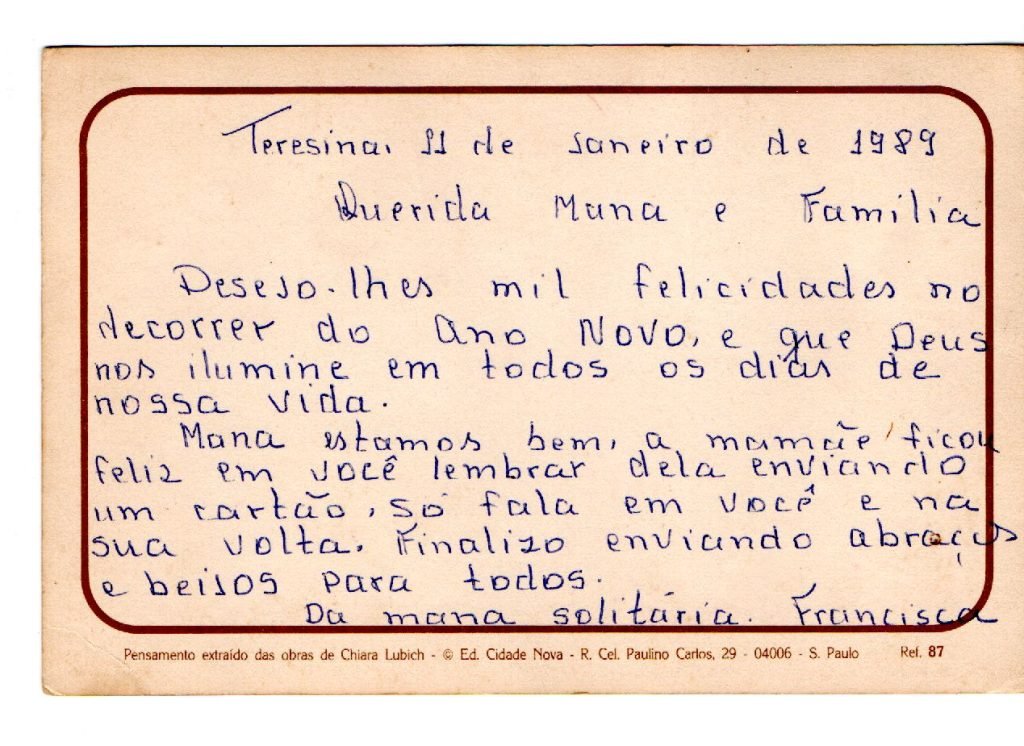 Teresina, 11 de Janeiro de 1989
Querida Mana e Família
Desejo-lhes mil felicidades no
decorrer do Ano Novo, e que Deus
nos ilumine em todos os dias de
nossa vida.
Mana estamos bem, a mamãe ficou
feliz em você lembrar dela enviando
um cartão, só fala em você e na
sua volta. Finalizo enviando abraços
e beijos para todos.
Da mana solitária. Francisca
Pensamento extraído das obras de Chiara Lubich - © Ed. Cidade Nova - R. Cel. Paulino Carlos, 29 - 04006 - S. Paulo Ref. 87